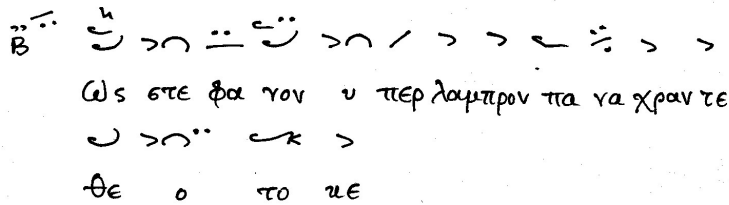 Β
Ως στε φα νον υ περ λαμπρον πα να χραν τε
θε ο το κε